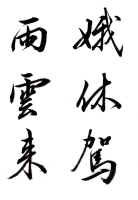 娥休駕
雨雲来